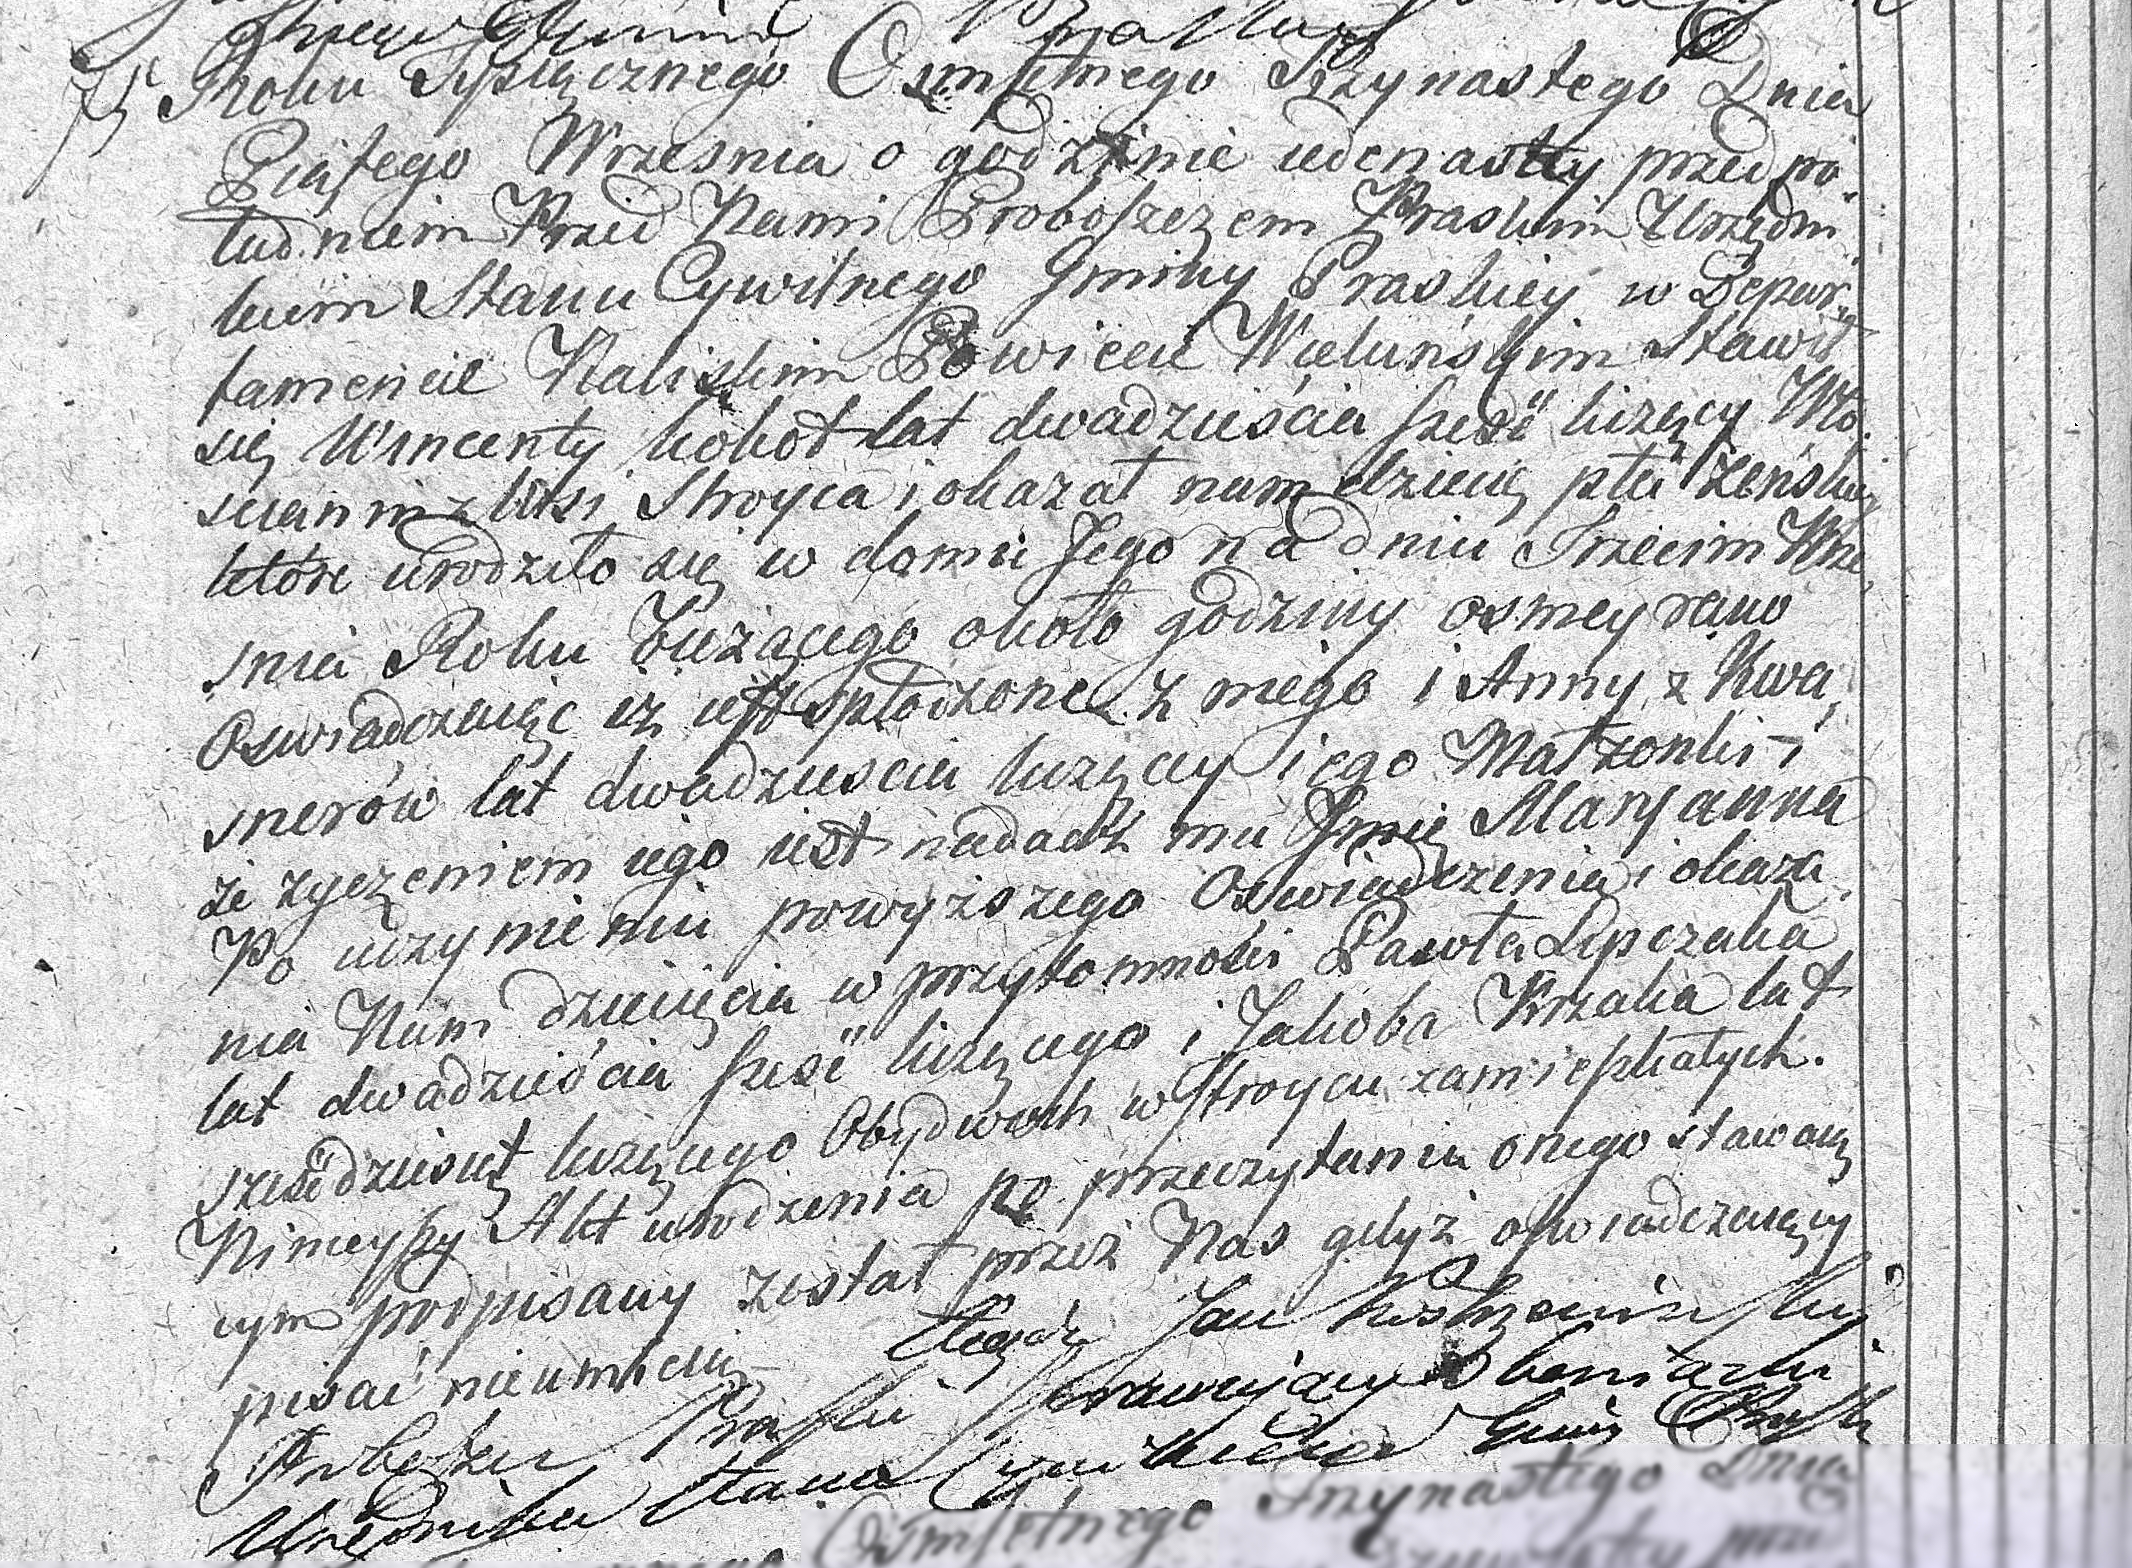 75 Roku Tysiącznego Osmsetnego Trzynastego Dnia
Piątego Wrzesnia o godzinie iedenastey przed po-
ludniem Przed Nami Proboszczem Praskim Urzędni-
kiem Stanu Cywilnego Gminy Praskiey w Depar-
tamencie Kaliskim Powiecie Wieluńskim Stawił
się Wincenty kokot lat dwadzieścia sześć liczący Wło-
scianin z Wsi Stroyca i okazał nam dziecię płci żeńskiey
które urodziło się w domu Jego na dniu Trzecim Wrze-
snia Roku bieżącego około godziny osmey rano
Oswiadczaiąc iż iest spłodzone z niego i Anny z Kwa-
snerów lat dwadziescia liczącey iego Małzonki i
że zyczeniem iego iest nadadź mu Jmię Maryanna
Po uczynieniu powyższego Oswiadczenia i okaza-
nia Nam dziecięcia w przytomności Pawła Lipczaka
lat dwadzieścia sześć liczącego i Jakoba Krzaka lat
sześćdziesiąt liczącego Obydwoch w Stroycu zamieszkałych.
Ninieyszy Akt urodzenia po przeczytaniu onego stawaią
cym podpisany został przez Nas gdyż oswiadczaiący
pisać nieumieią
Xiądz Jan
Proboszcz Praski Sprawuiący
Urzędnika Stanu Cywilnego Gminy
Osmsetnego Trzynastego Dnia